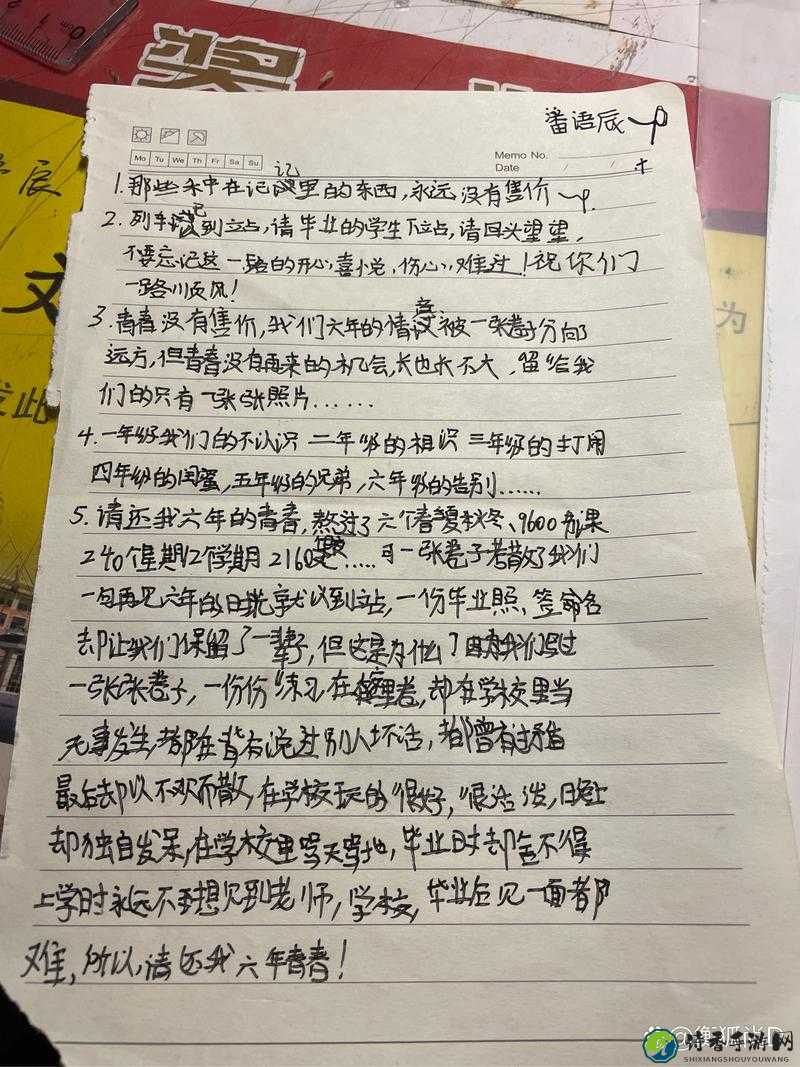 奖
语辰
Mo Tu We Th Fr Sa Su
Memo No.
Date / /
记
1.那些年中在记里的东西,永远没有售价
2.列车已到立占,请毕业的学生下立占,请回头望望,
不要忘记这一路的开心,喜悦,伤心,难过!祝你们
一路川页风!
3.青春没有售价,我们六年的情被一张卷子分向
远方,但青春没有再来的机会,长也长不大,留给我
们的只有一张张照片......
4.一年级我们的不认识 二年级的相识 三年级的打闹
四年级的闺蜜,五年级的兄弟,六年级的告别......
5.请还我六年的青春,熬过了六个春夏秋冬、9600节课
240个星期12个学期2160.....可一张卷子若散了我们
一句再见六年的时光就以到立占,一份毕业照、签命名
却让我们保留了一辈子,但这是为什么?因为我们写过
一张张卷子,一份份练习,在里卷,却在学校里当
无事发生,都在背有说过别人坏话,都曾有过矛盾
最后却以不欢而散,在学校玩的很好,很活泼,日晚上
却独自发呆,在学校里骂天骂地,毕业时却舍不得
上学时永远不想见到老师,学校,毕业后见一面都
难,所以,请还我六年青春!
文
为
发此
辰
诗香手游网
SHIXIANGSHOUYOUWANG